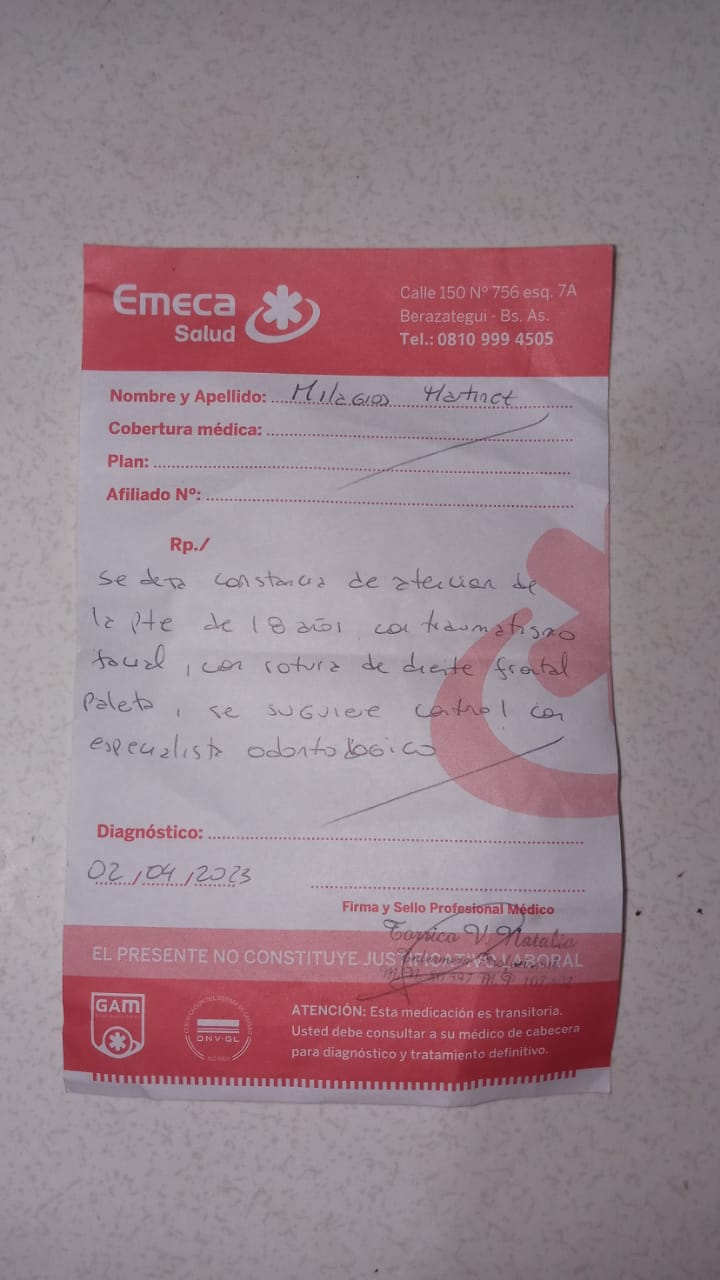 Emeca
Salud
Calle 150 Nº 756 esq. 7A
Berazategui - Bs. As.
Tel.: 0810 999 4505
Nombre y Apellido: Milagros
Cobertura médica:
Plan:
Afiliado Nº:
Rp./
Se deja constancia de atencion de
la pte de 18 años, con traumatismo
facial, con rotura de diente frontal
paleta, se suguiere control con
especialista odontologico
Diagnóstico:
02/04/2023
Firma y Sello Profesional Médico
Torrico V. Natalia
EL PRESENTE NO CONSTITUYE JUSTIFICATIVO LABORAL
GAM
DNV·GL
ATENCIÓN: Esta medicación es transitoria.
Usted debe consultar a su médico de cabecera
para diagnóstico y tratamiento definitivo.